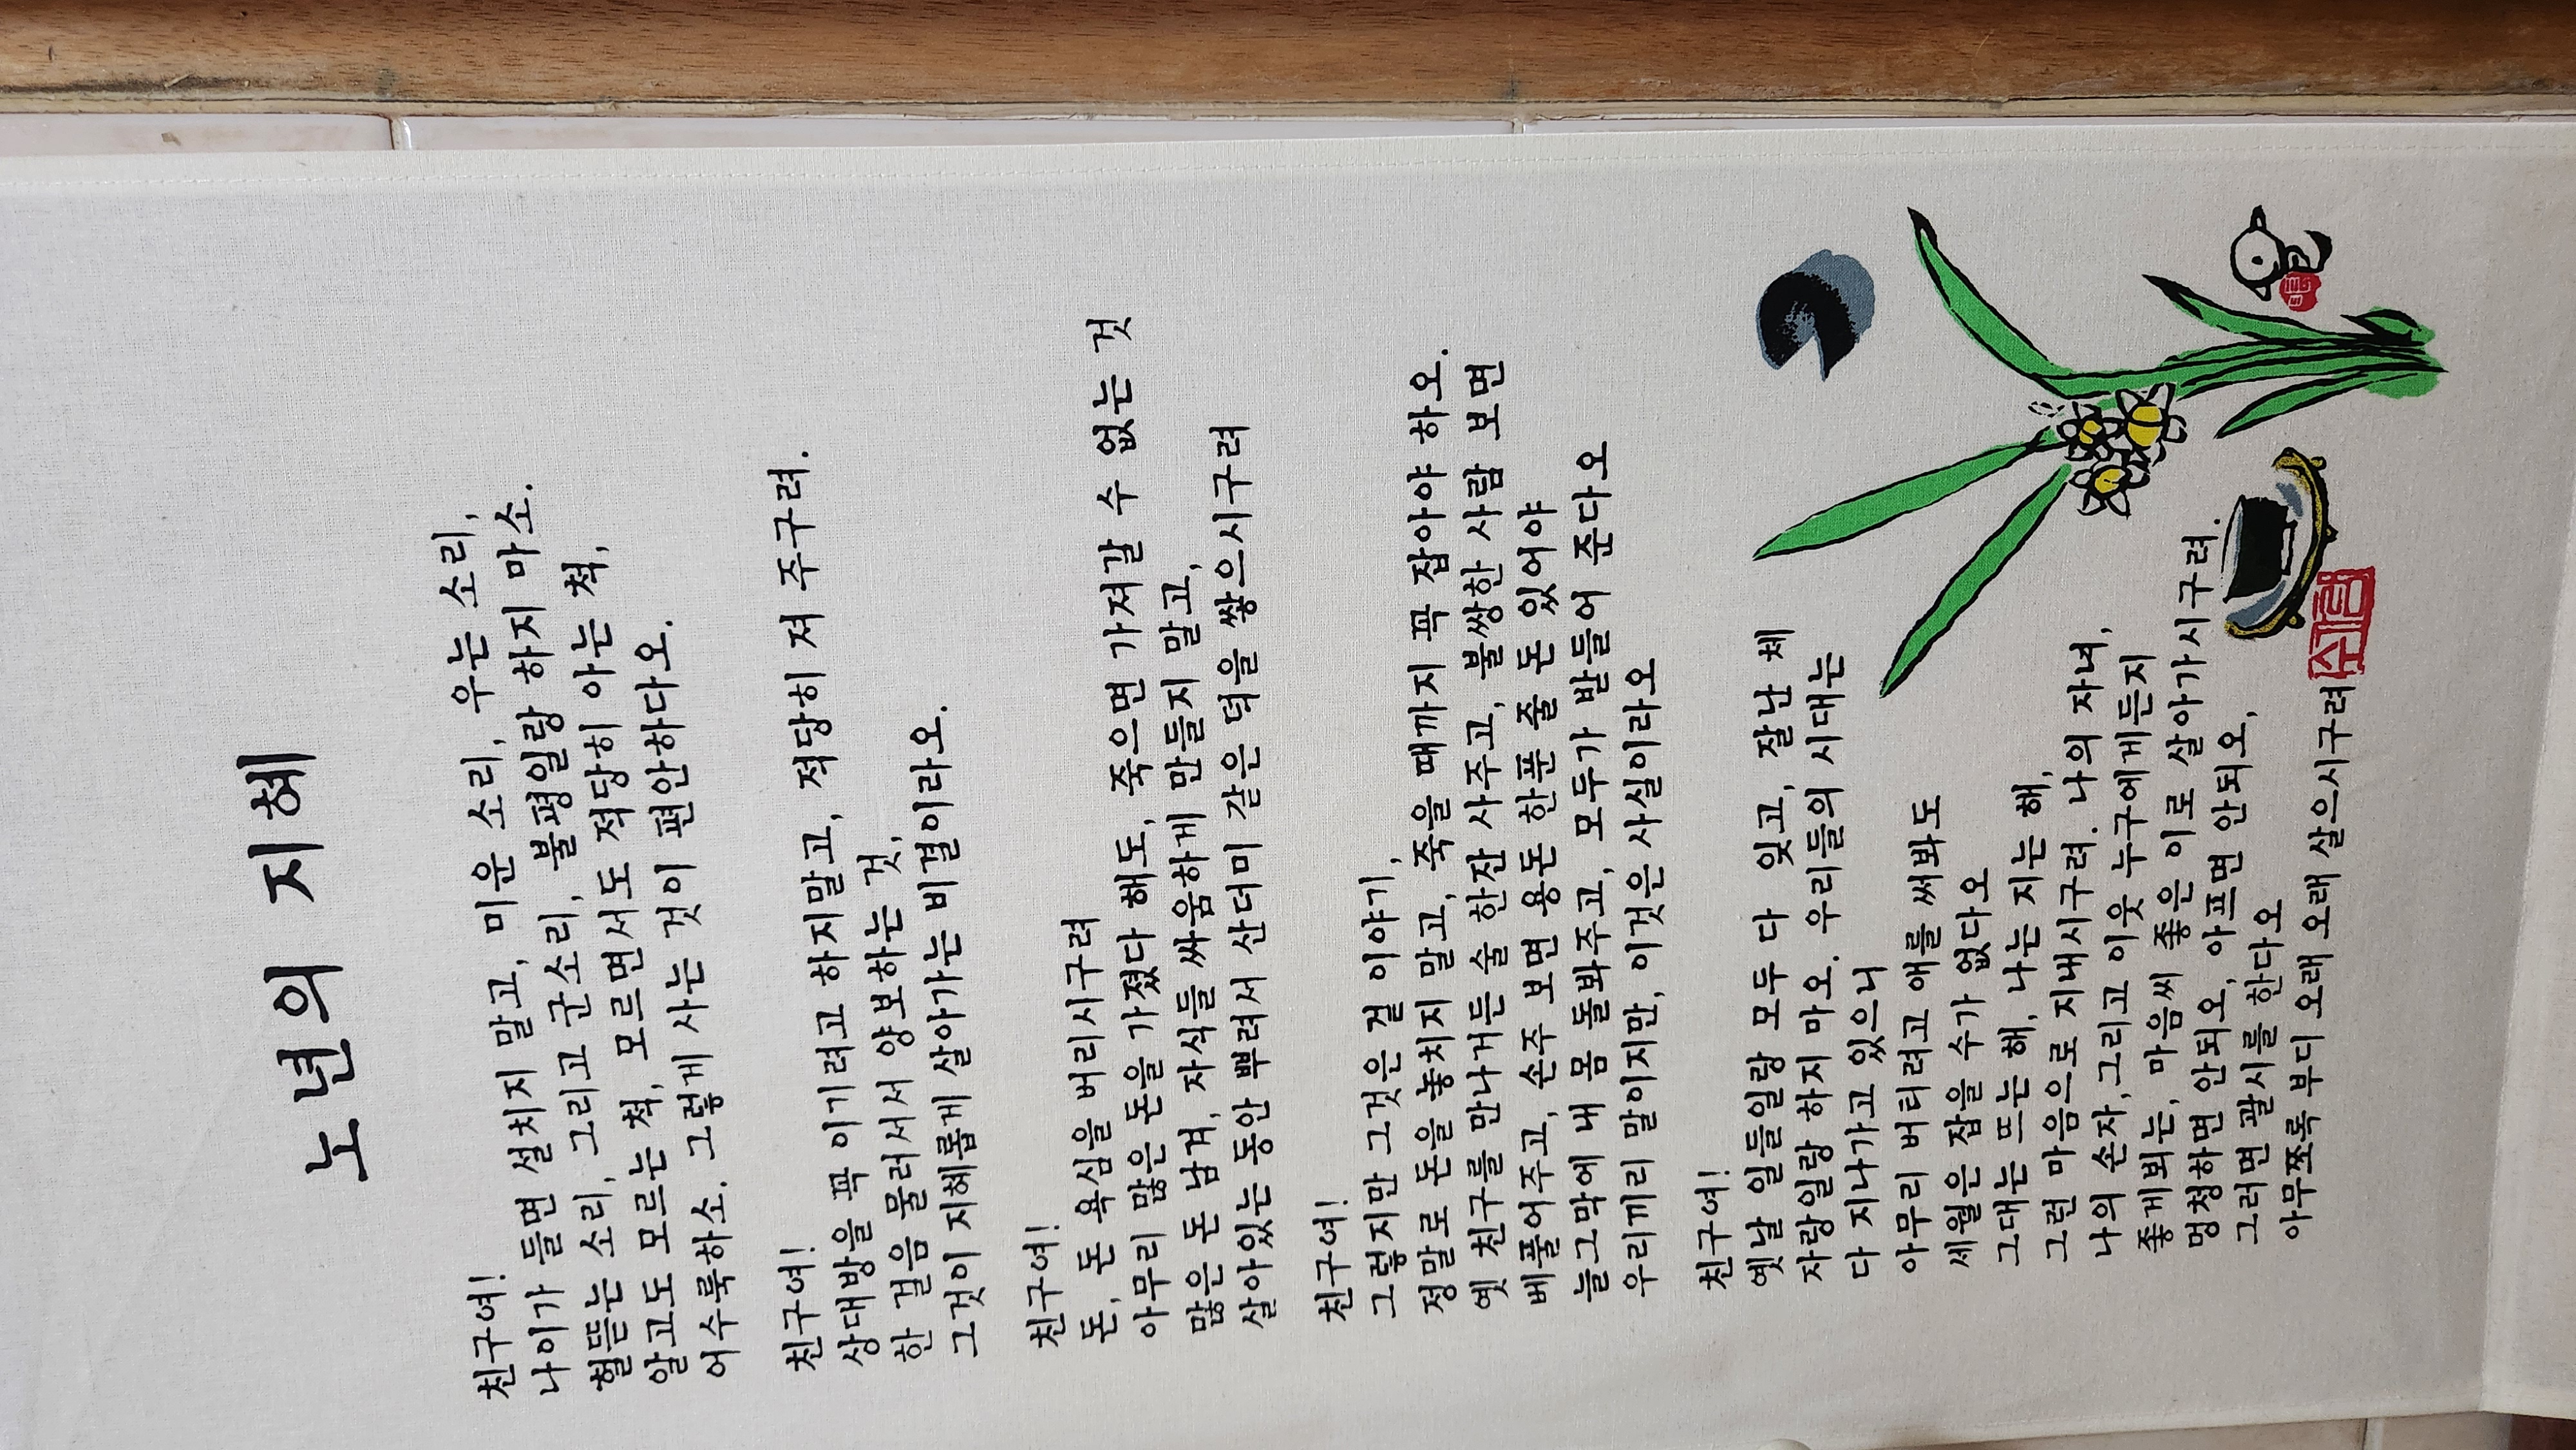 노년의 지혜
친구여!
나이가 들면 설치지 말고, 미운 소리, 우는 소리,
헐뜯는 소리, 그리고 군소리, 불평일랑 하지 마소.
알고도 모르는 척, 모르면서도 적당히 아는 척,
어수룩하소. 그렇게 사는 것이 편안하다오.
친구여!
상대방을 꼭 이기려고 하지말고, 적당히 져 주구려.
한 걸음 물러서서 양보하는 것,
그것이 지혜롭게 살아가는 비결이라오.
친구여!
돈, 돈 욕심을 버리시구려
아무리 많은 돈을 가졌다 해도, 죽으면 가져갈 수 없는 것
많은 돈 남겨, 자식들 싸움하게 만들지 말고,
살아있는 동안 뿌려서 산더미 같은 덕을 쌓으시구려
친구여!
그렇지만 그것은 겉 이야기,
정말로 돈을 놓치지 말고, 죽을 때까지 꼭 잡아야 하오.
옛 친구를 만나거든 술 한잔 사주고, 불쌍한 사람 보면
베풀어주고, 손주 보면 용돈 한푼 줄 돈 있어야
늘그막에 내 몸 돌봐주고, 모두가 받들어 준다오
우리끼리 말이지만, 이것은 사실이라오
친구여!
옛날 일들일랑 모두 다 잊고, 잘난 체
자랑일랑 하지 마오. 우리들의 시대는
다 지나가고 있으니
아무리 버티려고 애를 써봐도
세월은 잡을 수가 없다오
그대는 뜨는 해, 나는 지는 해,
그런 마음으로 지내시구려. 나의 자녀,
나의 손자,그리고 이웃 누구에게든지
좋게뵈는, 마음씨 좋은 이로 살아가시구려.
멍청하면 안되오, 아프면 안되오,
그러면 괄시를 한다오
아무쪼록 부디 오래 오래 살으시구려